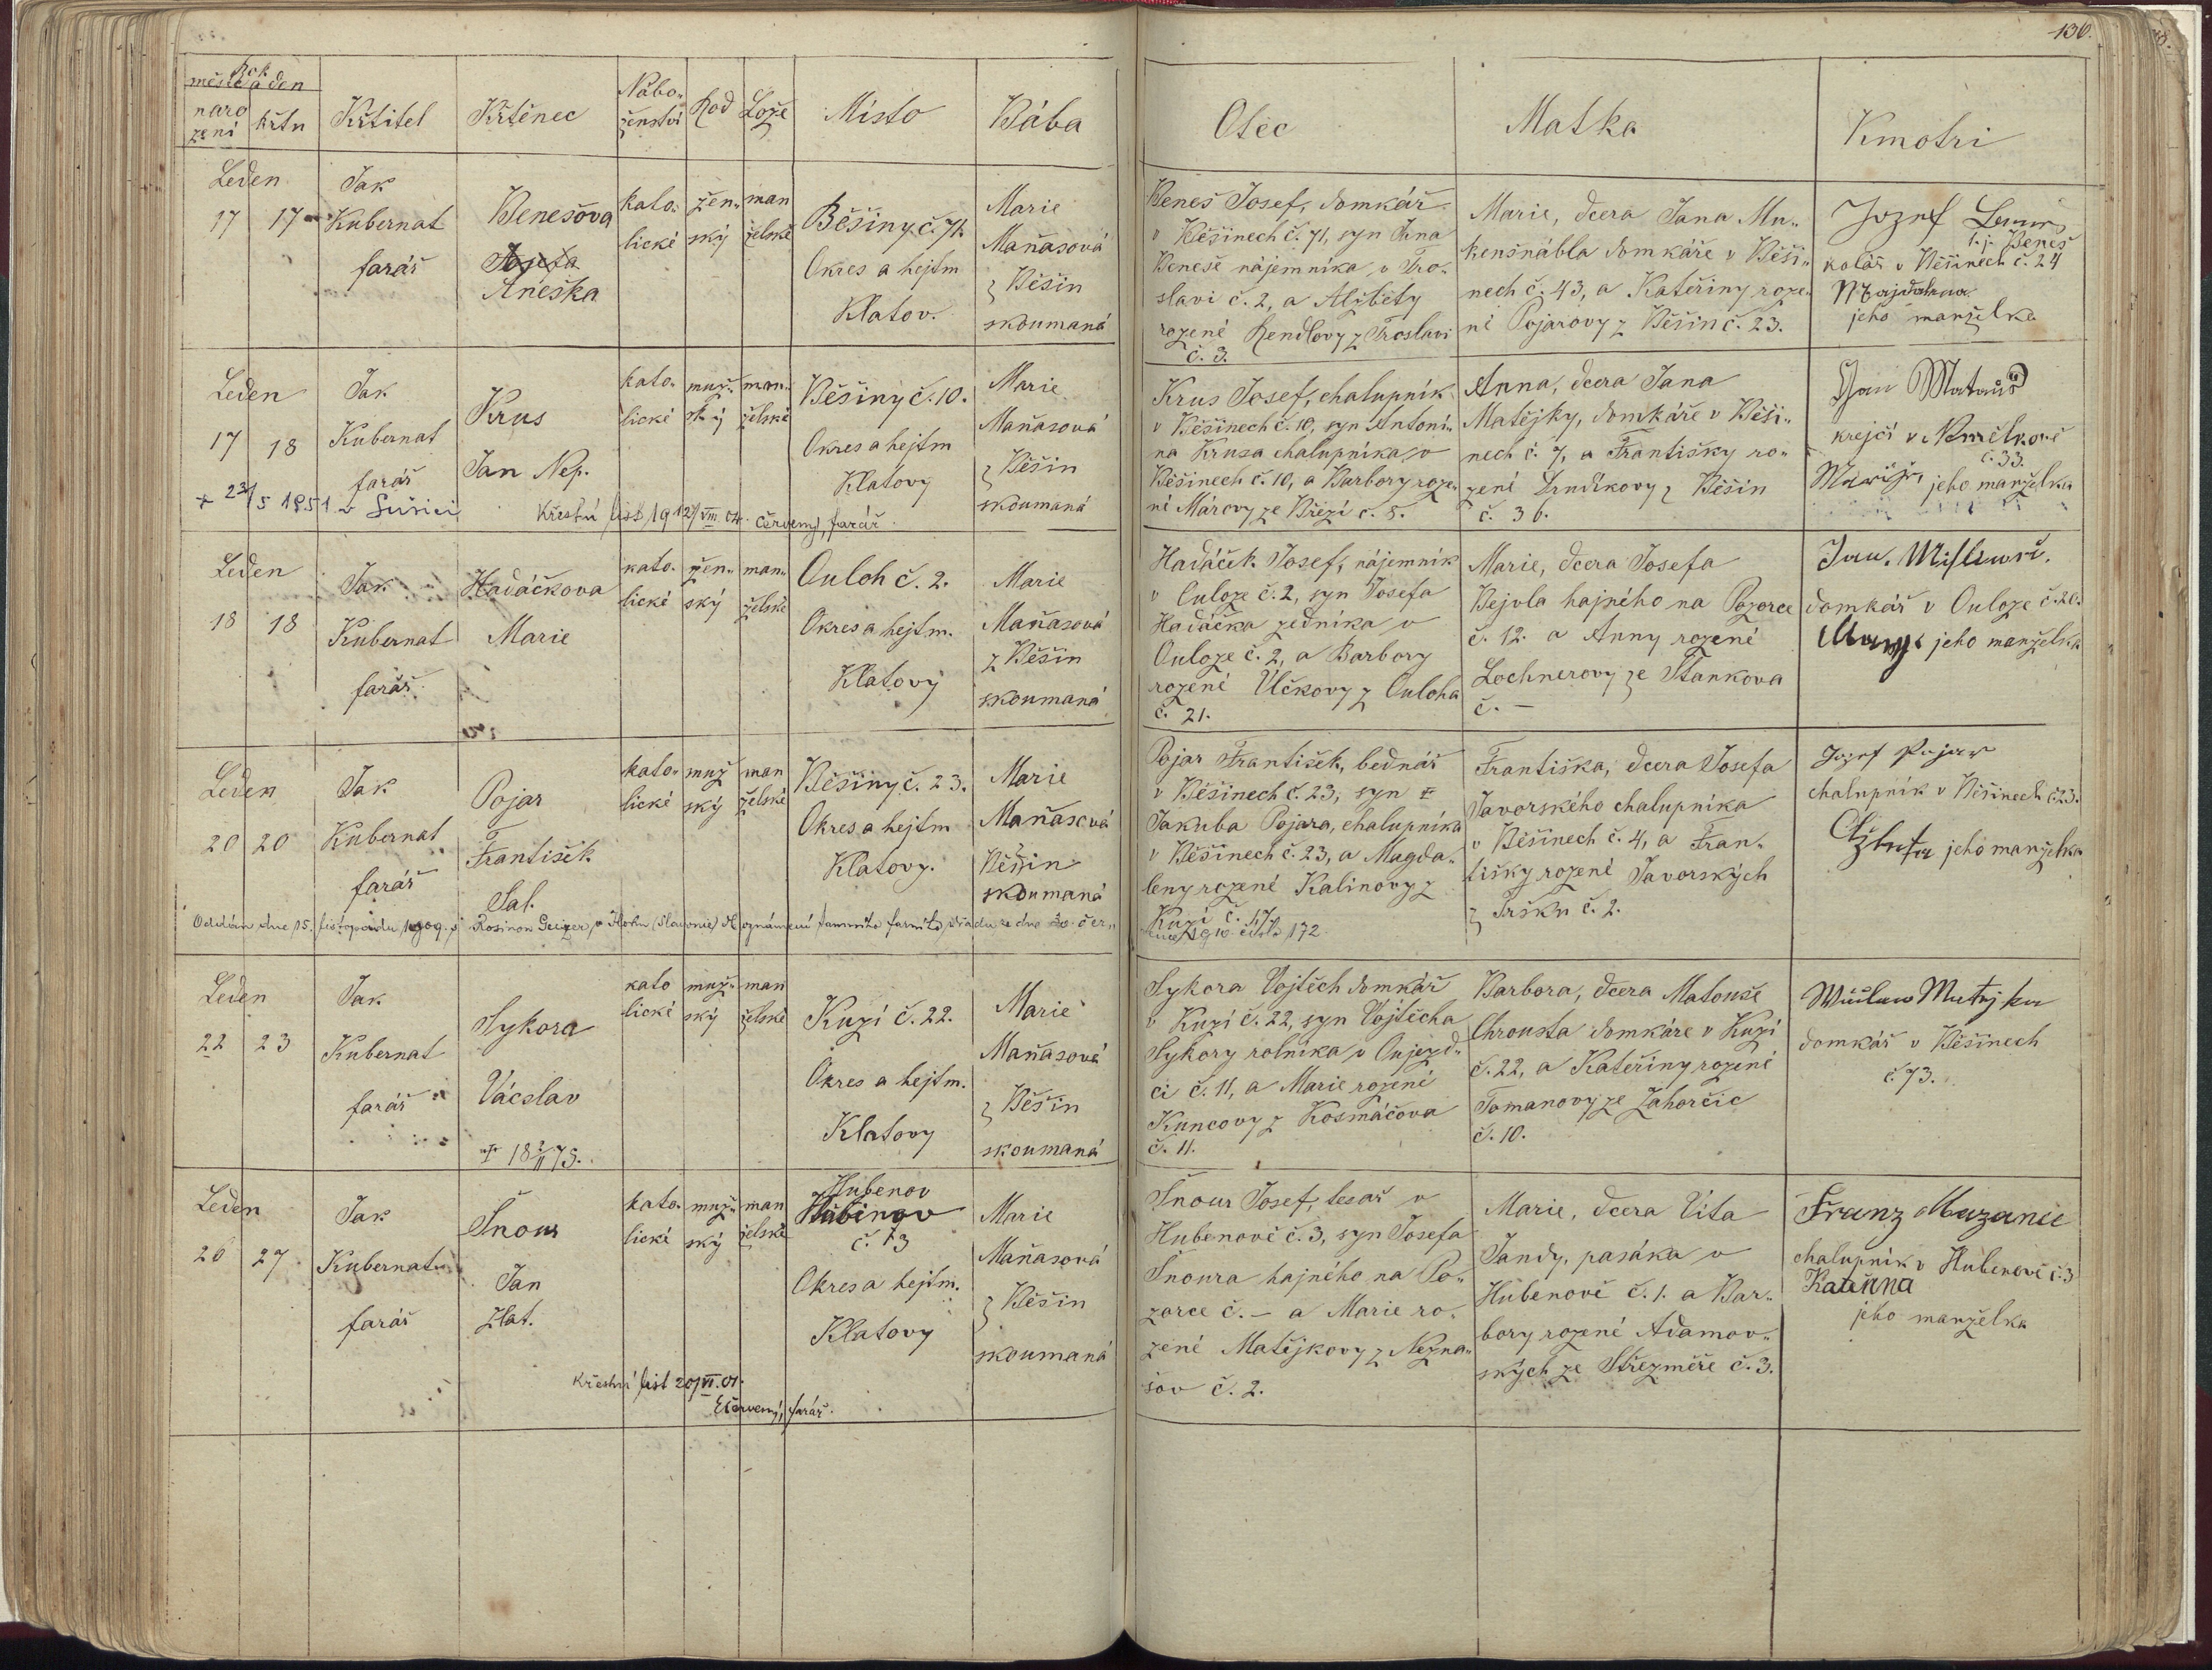 130.
Rok
měsíc a den
naro
zení
křtu
Křtitel
Křtěnec
Nábo-
ženství
Rod
Lože
Místo
Bába
Otec
Matka
Kmotři
Leden
17
17
Jak
Kubernat
farář
Benešova
Josefa
Aneška
kato-
lické
žen-
ský
man
želské
Běšiny č. 71.
Okres a hejtm
Klatov.
Marie
Maňasová
z Běšin
skoumaná
Beneš Josef, domkář
v Běšinech č. 71, syn Jana
Beneše nájemníka v Tro-
slavi č. 2, a Alžbety
rozené Rendlovy z Troslavi
č. 3.
Marie, dcera Jana Mu-
kenšnábla domkáře v Běši-
nech č. 43, a Kateřiny roze-
né Pojarovy z Běšin č. 23.
Jozef
t.j. Beneš
kolář v Běšinech č. 24
jeho manželka
Leden
17
18
Jak
Kubernat
farář
Krus
Jan Nep.
kato-
lické
muž-
ský
man-
želské
Běšiny č. 10.
Okres a hejtm
Klatovy
Marie
Maňasová
z Běšin
skoumaná
+ 23/5 1951 v Sušici
Křestní list 19 12/VIII. 04. Červený, farář.
Krus Josef, chalupník
v Běšinech č. 10, syn Antoní-
na Krusa chalupníka v
Běšinech č. 10, a Barbory roze-
né Márovy ze Březí č. 5.
Anna, dcera Jana
Matějky, domkáře v Běši-
nech č. 7, a Františky ro-
zené z Běšin
č. 36.
Jan Matauš
krejčí v
č. 33.
jeho manželka
Leden
18
18
Jak
Kubernat
farář
Hadáčkova
Marie
kato-
lické
žen-
ský
man-
želské
Ouloh č. 2.
Okres a hejtm.
Klatovy
Marie
Maňasová
z Běšin
skoumaná
Hadáček Josef, nájemník
v Ouloze č. 2, syn Josefa
Hadáčka zedníka v
Ouloze č. 2, a Barbory
rozené Ulčkovy z Ouloha
č. 21.
Marie, dcera Josefa
Bejvla hajného na Pozorce
č. 12. a Anny rozené
Lochnerovy ze Stankova
č. –
Jan.
domkář v Ouloze č. 20.
jeho manželka
Leden
20
20
Jak
Kubernat
farář
Pojar
František
Sal.
kato-
lické
muž
ský
man
želské
Běšiny č. 23.
Okres a hejtm
Klatovy.
Marie
Maňasová
z
Běšin
skoumaná
Oddán dne 15. listopadu 1909 s Rosinou Geizer, v (Slavonie) oznámení farního úřadu ze dne 30. čer-
Pojar František, bednář
v Běšinech č. 23, syn
Jakuba Pojara, chalupníka
v Běšinech č. 23, a Magda-
leny rozené Kalinovy z
Kuzí č. 17.
číslo 172
Františka, dcera Josefa
Javorského chalupníka
v Běšinech č. 4, a Fran-
tišky rozené Javorských
z Tršku č. 2.
Jozef Pojar
chalupník v Běšinech č. 23.
jeho manželka
Leden
22
23
Jak
Kubernat
farář
Sykora
Vácslav
kato
lické
muž-
ský
man
želské
Kuzí č. 22.
Okres a hejtm.
Klatovy
Marie
Maňasová
z Běšin
skoumaná
Sykora Vojtěch domkář
v Kuzí č. 22, syn Vojtěcha
Sykory rolníka v Oujezd-
ci č. 11, a Marie rozené
Kuncovy z Kosmáčova
č. 11.
Barbora, dcera Matouše
Chrousta domkáře v Kuzí
č. 22, a Kateřiny rozené
Tomanovy ze Zahorčic
č. 10.
Matejka
domkář v Běšinech
č. 73.
Leden
26
27
Jak
Kubernat
farář
Šnour
Jan
Zlat.
kato-
lické
muž-
ský
man
želské
Hubenov
Hubinov
č. 3
Okres a hejtm.
Klatovy
Marie
Maňasová
z Běšin
skoumaná
Křestní list 20/VI. 01.
Červený, farář.
Šnour Josef, tesař v
Hubenově č. 3, syn Josefa
Šnoura hajného na Po-
zorce č. – a Marie ro-
zené Matějkovy z Nezna-
šov č. 2.
Marie, dcera Víta
Jandy, pasáka v
Hubenově č. 1. a Bar-
bory rozené Adamov-
ských ze Střezměře č. 3.
Franz Mazanec
chalupník v Hubenově č. 3
Kateřina
jeho manželka